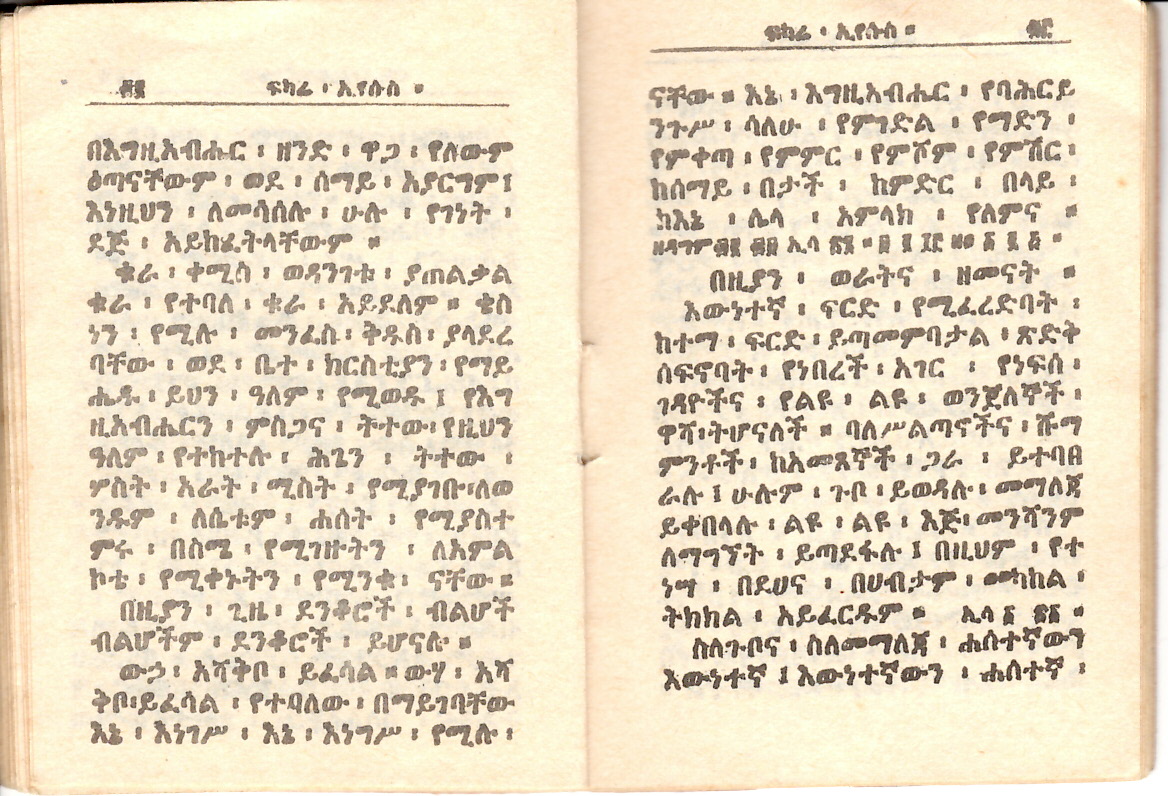 ፍካሬ ፡ ኢየሱስ ።
በእግዚአብሔር ፡ ዘንድ ፡ ዋጋ ፡ የለውም
ዕጣናቸውም ፡ ወደ ፡ ሰማይ ፡ አያርግም ፤
እነዚህን ፡ ለመሳሰሉ ፡ ሁሉ ፡ የገነት ፡
ደጅ ፡ አይከፈትላቸውም ።
ቁራ ፡ ቀሚስ ፡ ወዳንገቱ ፡ ያጠልቃል
ቁራ ፡ የተባለ ፡ ቁራ ፡ አይደለም ። ቄስ
ነን ፡ የሚሉ ፡ መንፈስ ፡ ቅዱስ ፡ ያላደረ
ባቸው ፡ ወደ ፡ ቤተ ፡ ክርስቲያን ፡ የማይ
ሔዱ ፡ ይህን ፡ ዓለም ፡ የሚወዱ ፤ የእግ
ዚአብሔርን ፡ ምስጋና ፡ ትተው ፡ የዚህን
ዓለም ፡ የተከተሉ ፡ ሕጌን ፡ ትተው ፡
ሦስት ፡ አራት ፡ ሚስት ፡ የሚያገቡ ፡ ለወ
ንዱም ፡ ለሴቱም ፡ ሐሰት ፡ የሚያስተ
ምሩ ፡ በስሜ ፡ የሚገዙትን ፡ ለአምል
ኮቴ ፡ የሚቀኑትን ፡ የሚንቁ ፡ ናቸው ።
በዚያን ፡ ጊዜ ፡ ደንቆሮች ፡ ብልሆች
ብልሆችም ፡ ደንቆሮች ፡ ይሆናሉ ።
ውኃ ፡ አሻቅቦ ፡ ይፈሳል ። ውሃ ፡ አሻ
ቅቦ ፡ ይፈሳል ፡ የተባለው ፡ በማይገባቸው
እኔ ፡ እነግሥ ፡ እኔ ፡ እነግሥ ፡ የሚሉ ፡
ፍካሬ ፡ ኢየሱስ ።
ናቸው ። እኔ ፡ እግዚአብሔር ፡ የባሕርይ
ንጉሥ ፡ ሳለሁ ፡ የምገድል ፡ የማድን ፡
የምቀጣ ፡ የምምር ፡ የምሾም ፡ የምሽር ፡
ከሰማይ ፡ በታች ፡ ከምድር ፡ በላይ ፡
ከእኔ ፡ ሌላ ፡ አምላክ ፡ የለምና ።
በዚያን ፡ ወራትና ፡ ዘመናት ።
እውነተኛ ፡ ፍርድ ፡ የሚፈረድባት ፡
ከተማ ፡ ፍርድ ፡ ይጣመምባታል ፡ ጽድቅ
ሰፍኖባት ፡ የነበረች ፡ አገር ፡ የነፍሰ ፡
ገዳዮችና ፡ የልዩ ፡ ልዩ ፡ ወንጀለኞች ፡
ዋሻ ፡ ትሆናለች ። ባለሥልጣኖችና ፡ ሹማ
ምንቶች ፡ ከአመጸኞች ፡ ጋራ ፡ ይተባበ
ራሉ ፤ ሁሉም ፡ ጉቦ ፡ ይወዳሉ ፡ መማለጃ
ይቀበላሉ ፡ ልዩ ፡ ልዩ ፡ እጅ ፡ መንሻንም
ለማግኘት ፡ ይጣደፋሉ ፤ በዚህም ፡ የተ
ነሣ ፡ በደሀና ፡ በሀብታም ፡ መካከል ፡
ትክክል ፡ አይፈርዱም ።
ስለጉቦና ፡ ስለመማለጃ ፡ ሐሰተኛውን
እውነተኛ ፤ እውነተኛውን ፡ ሐሰተኛ ፡